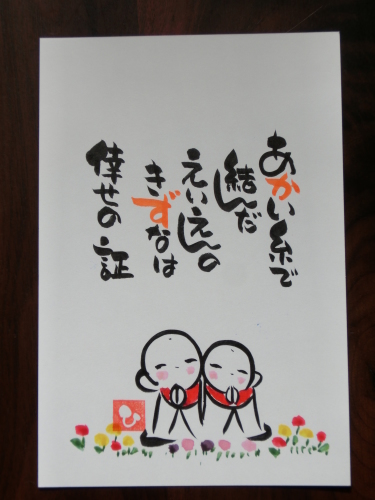 あかい糸で
結んだ
えいえんの
きずなは
倖せの証